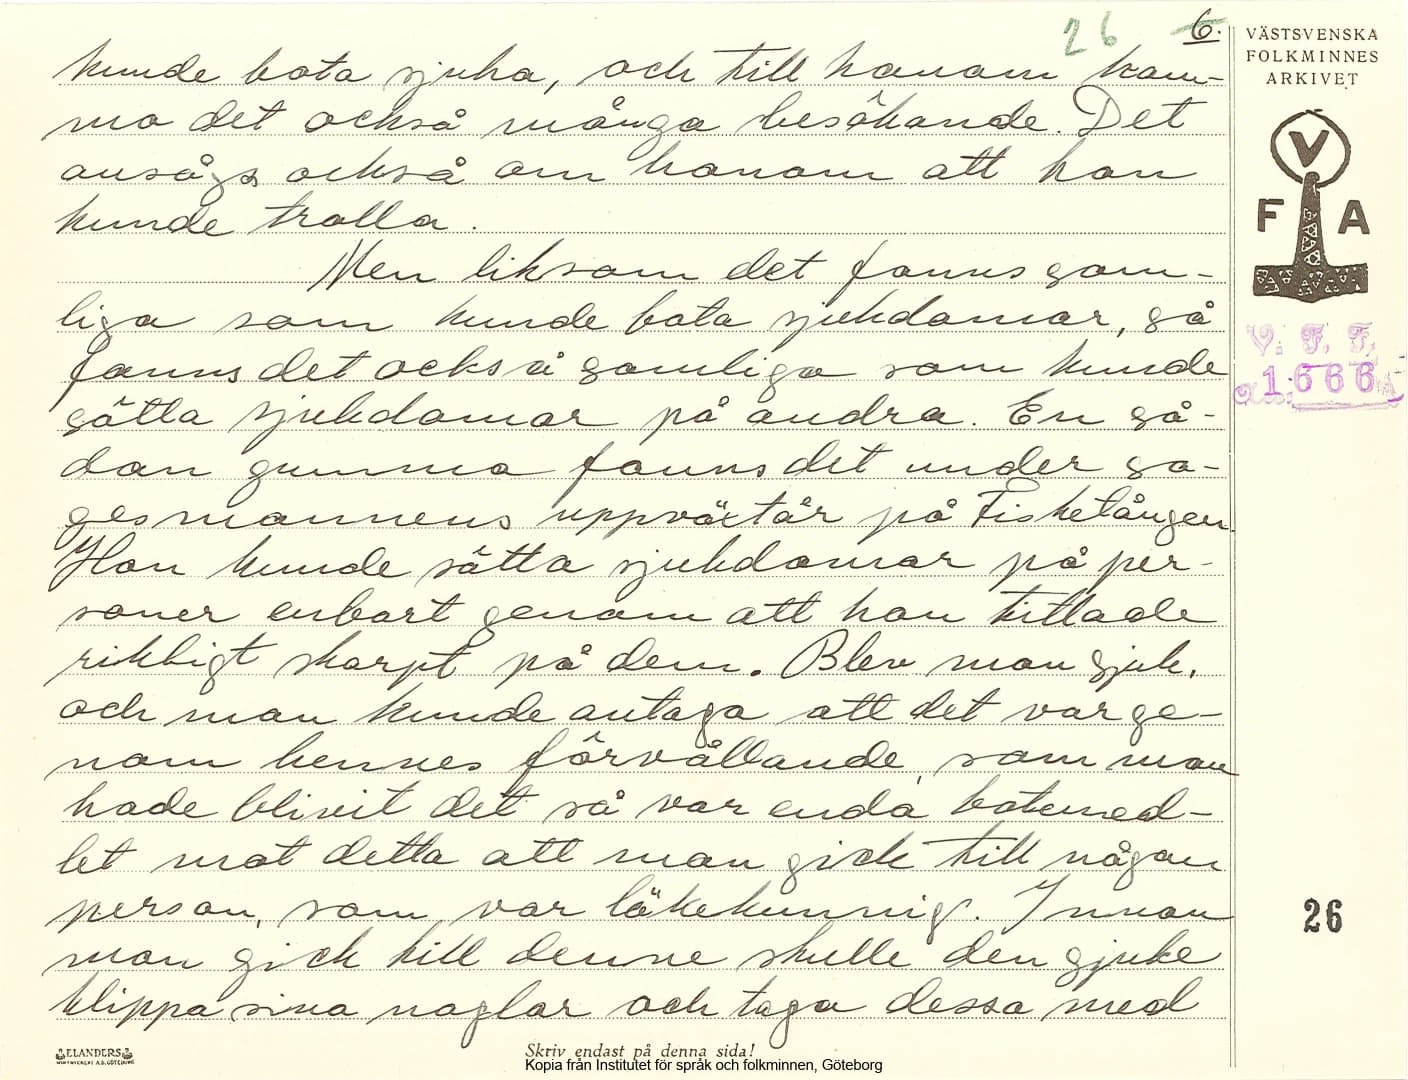 26 6.
VÄSTSVENSKA
FOLKMINNES
ARKIVET
V
F A
V. F. F.
1666
kunde bota sjuka, och till honom kom-
mo det också många besökande. Det
ansågs också om honom att han
kunde trolla.
Men liksom det fanns som-
liga som kunde bota sjukdomar, så
fanns det också somliga som kunde
sätta sjukdomar på andra. En så-
dan gumma fanns det under sa-
gesmannens uppväxtår på Fisketången.
Hon kunde sätta sjukdomar på per-
soner enbart genom att hon tittade
riktigt skarpt på dem. Blev man sjuk,
och man kunde antaga att det var ge-
nom hennes förvållande, som man
hade blivit det så var enda botemed-
let mot detta att man gick till någon
person, som var läkekunnig. Innan
man gick till denne skulle den sjuke
klippa sina naglar och taga dessa med
26
ELANDERS
Skriv endast på denna sida!
Kopia från Institutet för språk och folkminnen, Göteborg